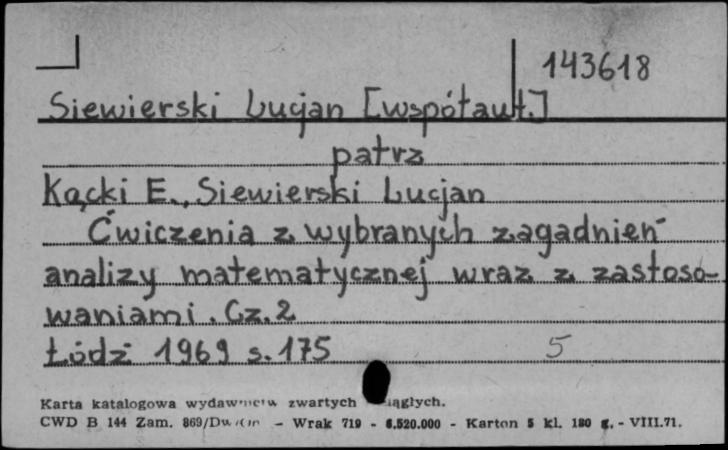 143618
Siewierski Lucjan [współaut.]
patrz
Kącki E., Siewierski Lucjan
Ćwiczenia z wybranych zagadnień
analizy matematycznej wraz z zastoso-
waniami. Cz. 2
Łódź 1969 s. 175 5
Karta katalogowa wydawnictw zwartych
CWD B 144 Zam. 869/ - Wrak 719 - 6.520.000 - Karton 5 kl. 180 g. - VIII.71.